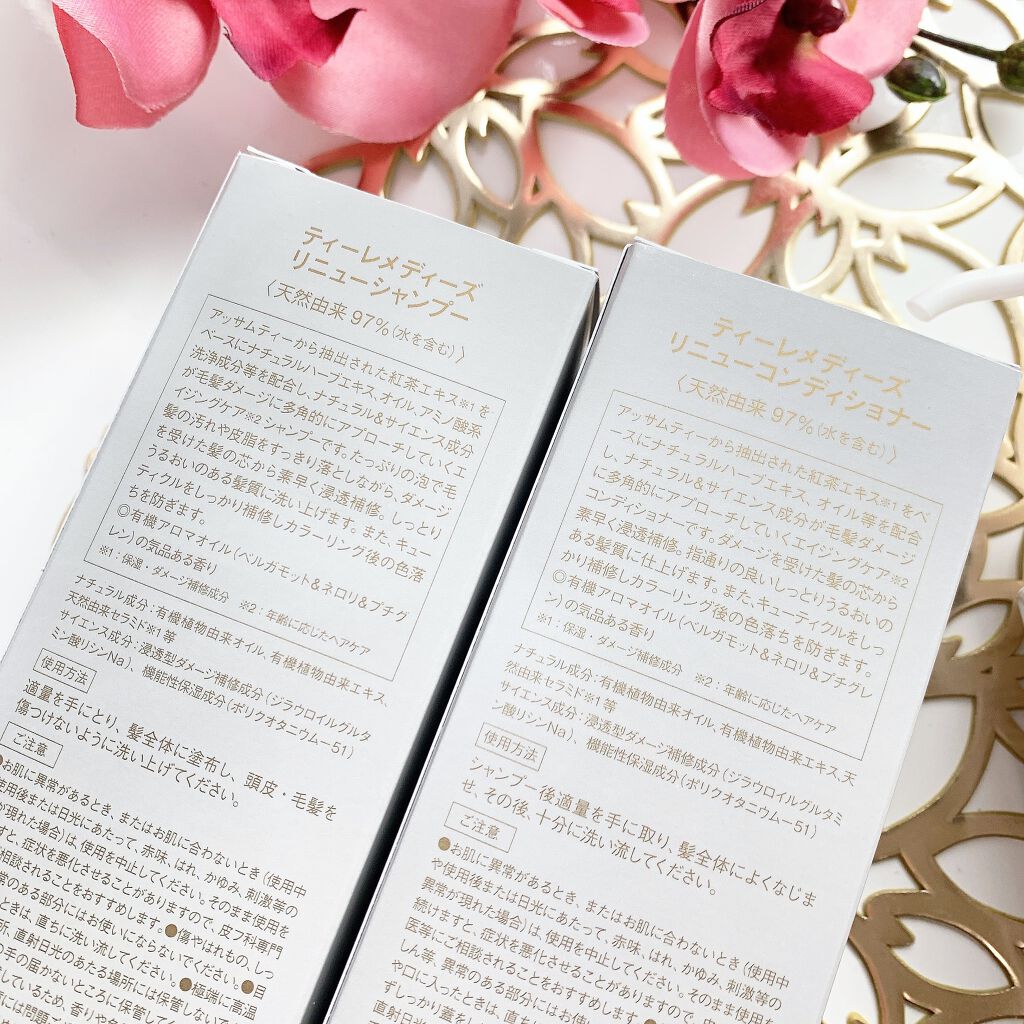 ティーレメディーズ
リニューシャンプー
〈天然由来 97%(水を含む)〉
アッサムティーから抽出された紅茶エキス※1を
ベースにナチュラルハーブエキス、オイル、アミノ酸系
洗浄成分等を配合し、ナチュラル&サイエンス成分
が毛髪ダメージに多角的にアプローチしていくエ
イジングケア※2シャンプーです。たっぷりの泡で毛
髪の汚れや皮脂をすっきり落としながら、ダメージ
を受けた髪の芯から素早く浸透補修。しっとり
うるおいのある髪質に洗い上げます。また、キュー
ティクルをしっかり補修しカラーリング後の色落
ちを防ぎます。
◎有機アロマオイル(ベルガモット&ネロリ&プチグ
レン)の気品ある香り
※1:保湿・ダメージ補修成分 ※2:年齢に応じたヘアケア
ナチュラル成分:有機植物由来オイル、有機植物由来エキス、
天然由来セラミド※1等
サイエンス成分:浸透型ダメージ補修成分(ジラウロイルグルタ
ミン酸リシンNa)、機能性保湿成分(ポリクオタニウムー51)
使用方法
適量を手にとり、髪全体に塗布し、頭皮・毛髪を
傷つけないように洗い上げてください。
ご注意
●お肌に異常があるとき、またはお肌に合わないとき(使用中
使用後または日光にあたって、赤味、はれ、かゆみ、刺激等の
が現れた場合)は、使用を中止してください。そのまま使用を
すと、症状を悪化させることがありますので、皮フ科専門
相談されることをおすすめします。●傷やはれもの、しっ
常のある部分にはお使いにならないでください。●目
ときは、直ちに洗い流してください。●極端に高温
所、直射日光のあたる場所には保管しないで
の手の届かないところに保管して
ているため、香りや
ティーレメディーズ
リニューコンディショナー
〈天然由来 97%(水を含む)〉
アッサムティーから抽出された紅茶エキス※1をベ
ースにナチュラルハーブエキス、オイル等を配合
し、ナチュラル&サイエンス成分が毛髪ダメージ
に多角的にアプローチしていくエイジングケア※2
コンディショナーです。ダメージを受けた髪の芯から
素早く浸透補修。指通りの良いしっとりうるおいの
ある髪質に仕上げます。また、キューティクルをしっ
かり補修しカラーリング後の色落ちを防ぎます。
◎有機アロマオイル(ベルガモット&ネロリ&プチグレ
ン)の気品ある香り
※1:保湿・ダメージ補修成分 ※2:年齢に応じたヘアケア
ナチュラル成分:有機植物由来オイル、有機植物由来エキス、天
然由来セラミド※1等
サイエンス成分:浸透型ダメージ補修成分(ジラウロイルグルタミ
ン酸リシンNa)、機能性保湿成分(ポリクオタニウムー51)
使用方法
シャンプー後適量を手に取り、髪全体によくなじま
せ、その後、十分に洗い流してください。
ご注意
●お肌に異常があるとき、またはお肌に合わないとき(使用中
や使用後または日光にあたって、赤味、はれ、かゆみ、刺激等の
異常が現れた場合)は、使用を中止してください。そのまま使用を
続けますと、症状を悪化させることがありますので、
医等にご相談されることをおすすめします
しん等、異常のある部分にはお使い
や口に入ったときは、直ちに
ずしっかり蓋を
直射日光